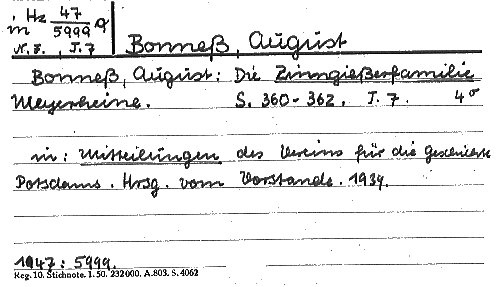 in Hz 47/5999 a
N. F., J. 7
Bonneß, August
Bonneß, August: Die Zinngießerfamilie
Meyerheine. S. 360-362. J. 7. 4°
in: Mitteilungen des Vereins für die Geschichte
Potsdams. Hrsg. vom Vorstande. 1939.
1947: 5999.
Reg. 10. Stichnote. I. 50. 232000. A.803. S. 4062